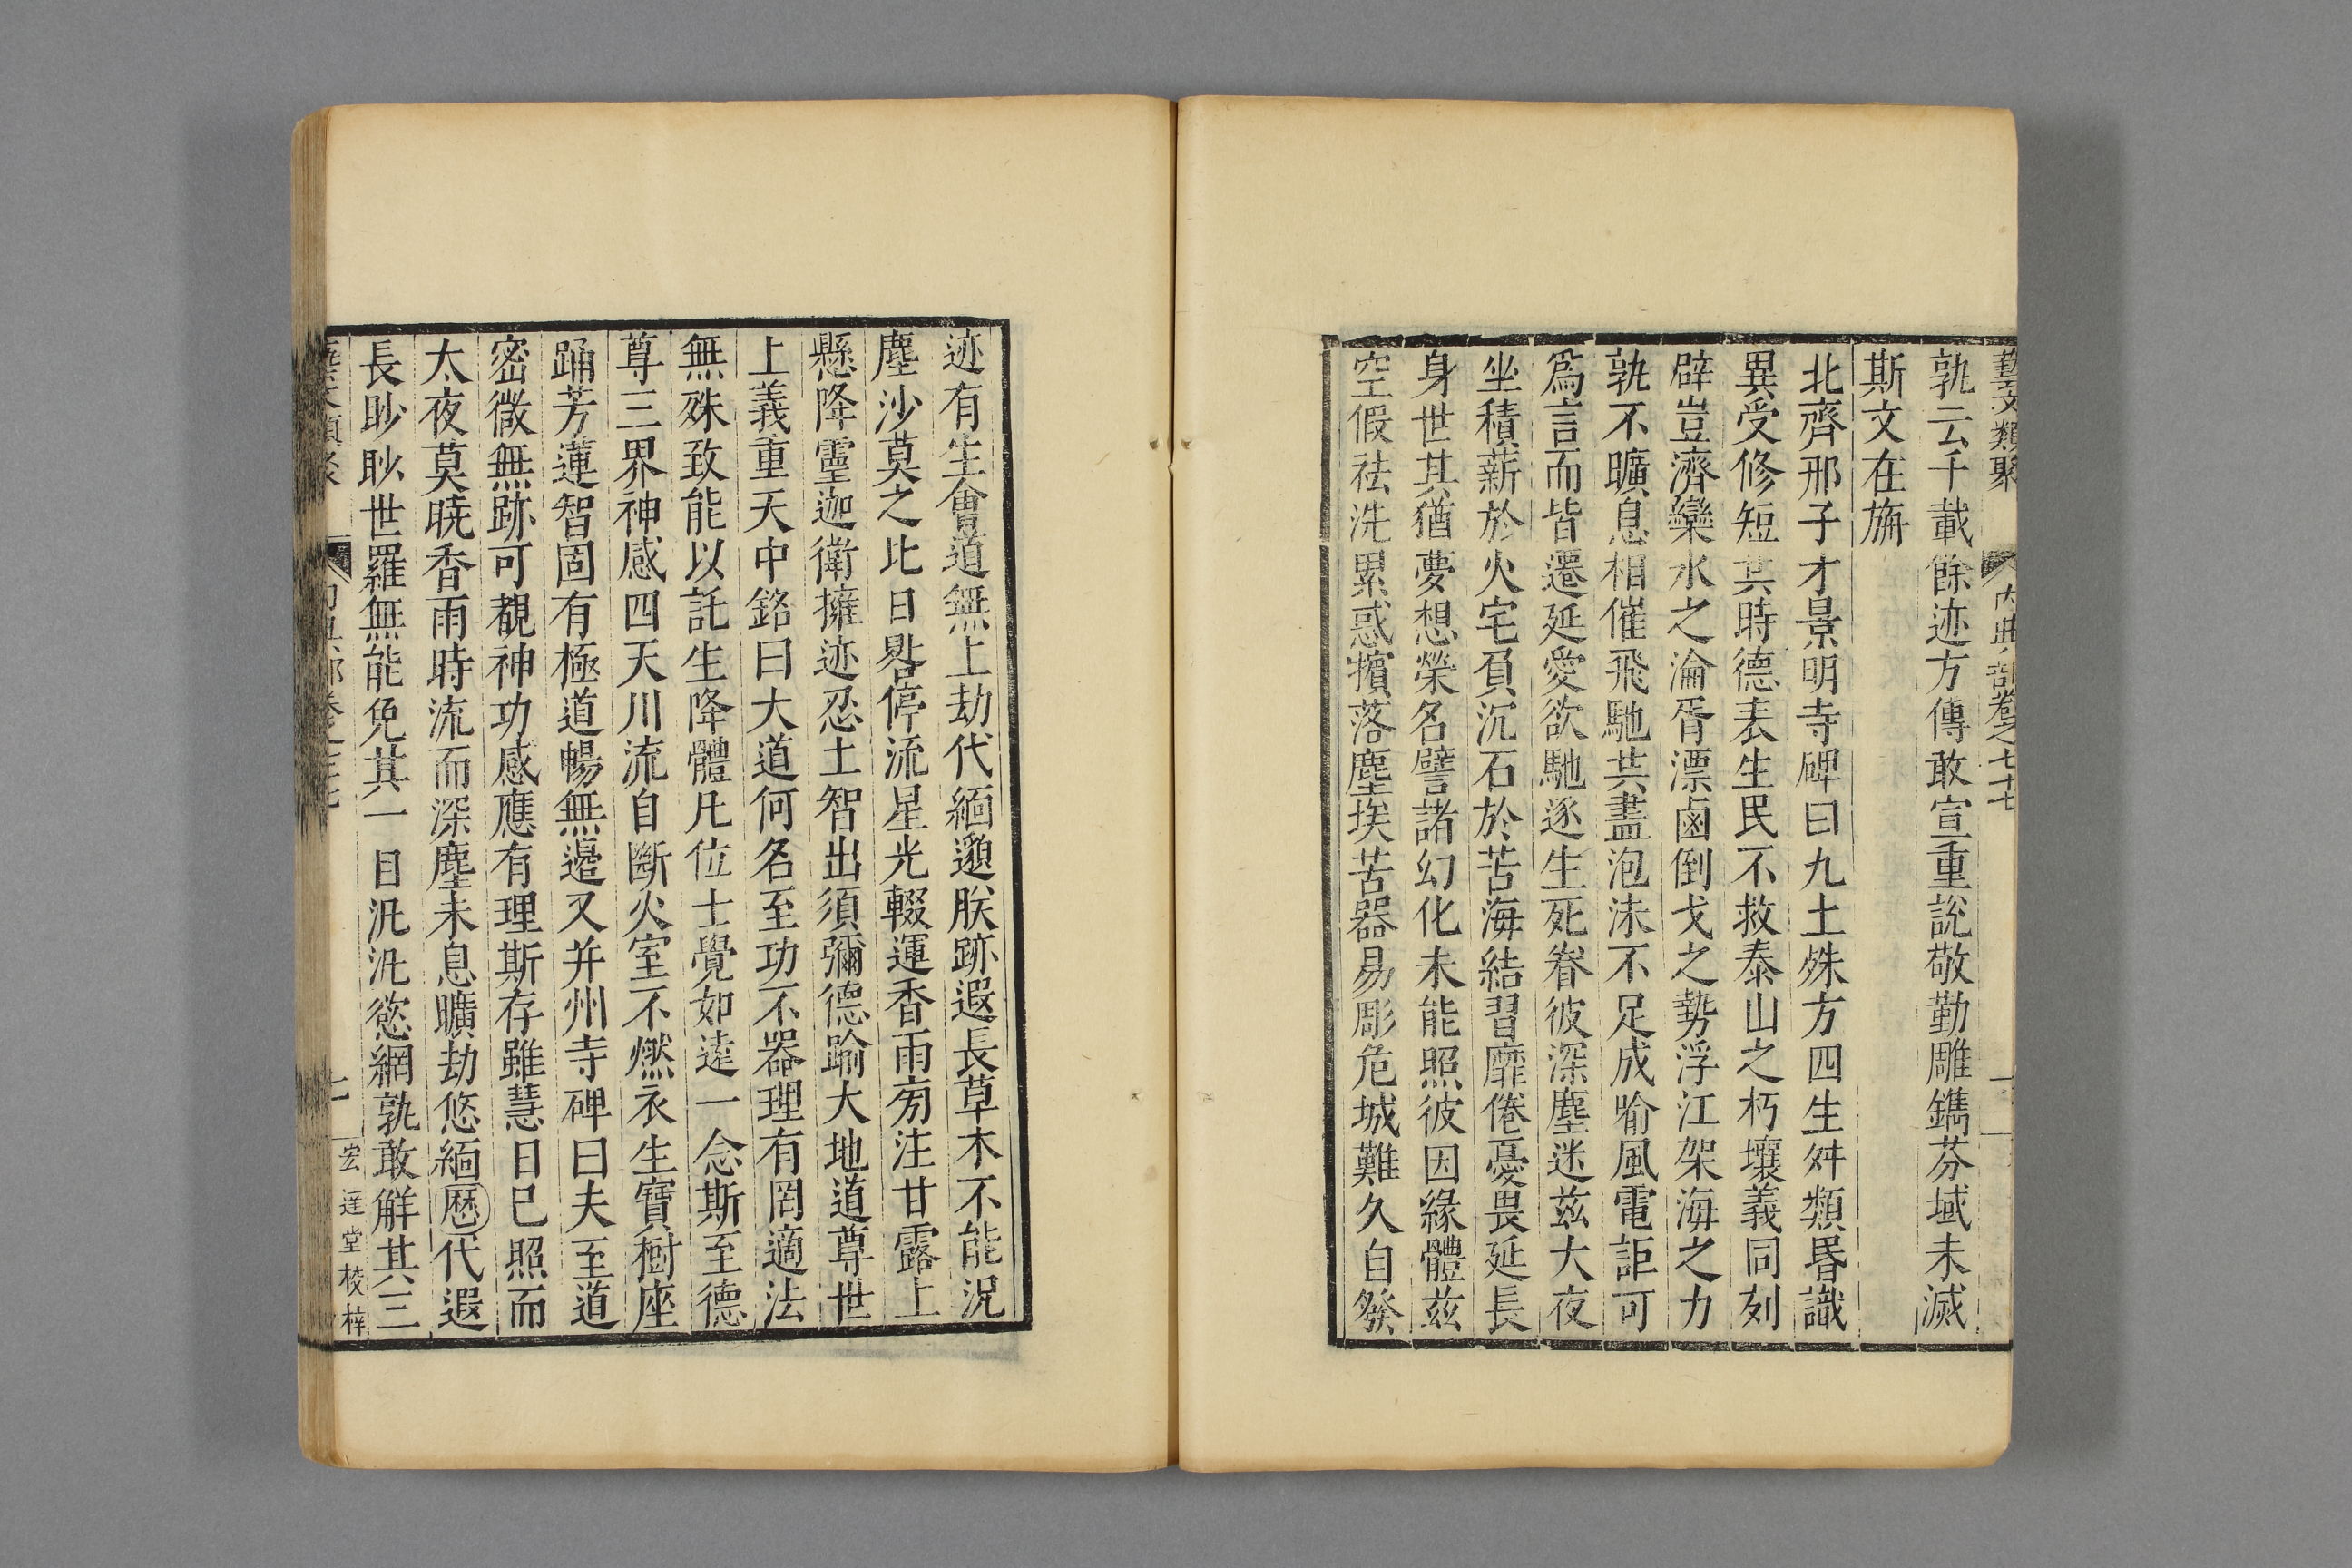 藝文類聚 內典部卷之七十七
孰云千載餘迹方傳敢宣重說敬勤雕鐫芬域未滅
斯文在旃
北齊邢子才景明寺碑曰九土殊方四生舛類昏識
異受修短共時德表生民不救泰山之朽壤義同列
辟豈濟欒水之淪胥漂鹵倒戈之勢浮江架海之力
孰不曠息相催飛馳共盡泡沫不足成喻風電詎可
爲言而皆遷延愛欲馳逐生死眷彼深塵迷玆大夜
坐積薪於火宅負沉石於苦海結習靡倦憂畏延長
身世其猶夢想榮名譬諸幻化未能照彼因緣體茲
空假祛洗累惑擯落塵埃苦器易彫危城難久自發
迹有生會道無上劫代緬邈朕跡遐長草木不能況
塵沙莫之比日晷停流星光輟運香雨旁注甘露上
懸降靈迦衛擁迹忍土智出須彌德踰大地道尊世
上義重天中銘曰大道何名至功不器理有罔適法
無殊致能以託生降體凡位士覺如遠一念斯至德
尊三界神感四天川流自斷火室不燃衣生寶樹座
踊芳蓮智固有極道暢無邊又并州寺碑曰夫至道
密微無跡可覩神功感應有理斯存雖慧日巳照而
太夜莫曉香雨時流而深塵未息曠劫悠緬歷代遐
長眇眇世羅無能免其一目汎汎慾網孰敢解其三
宏達堂校梓